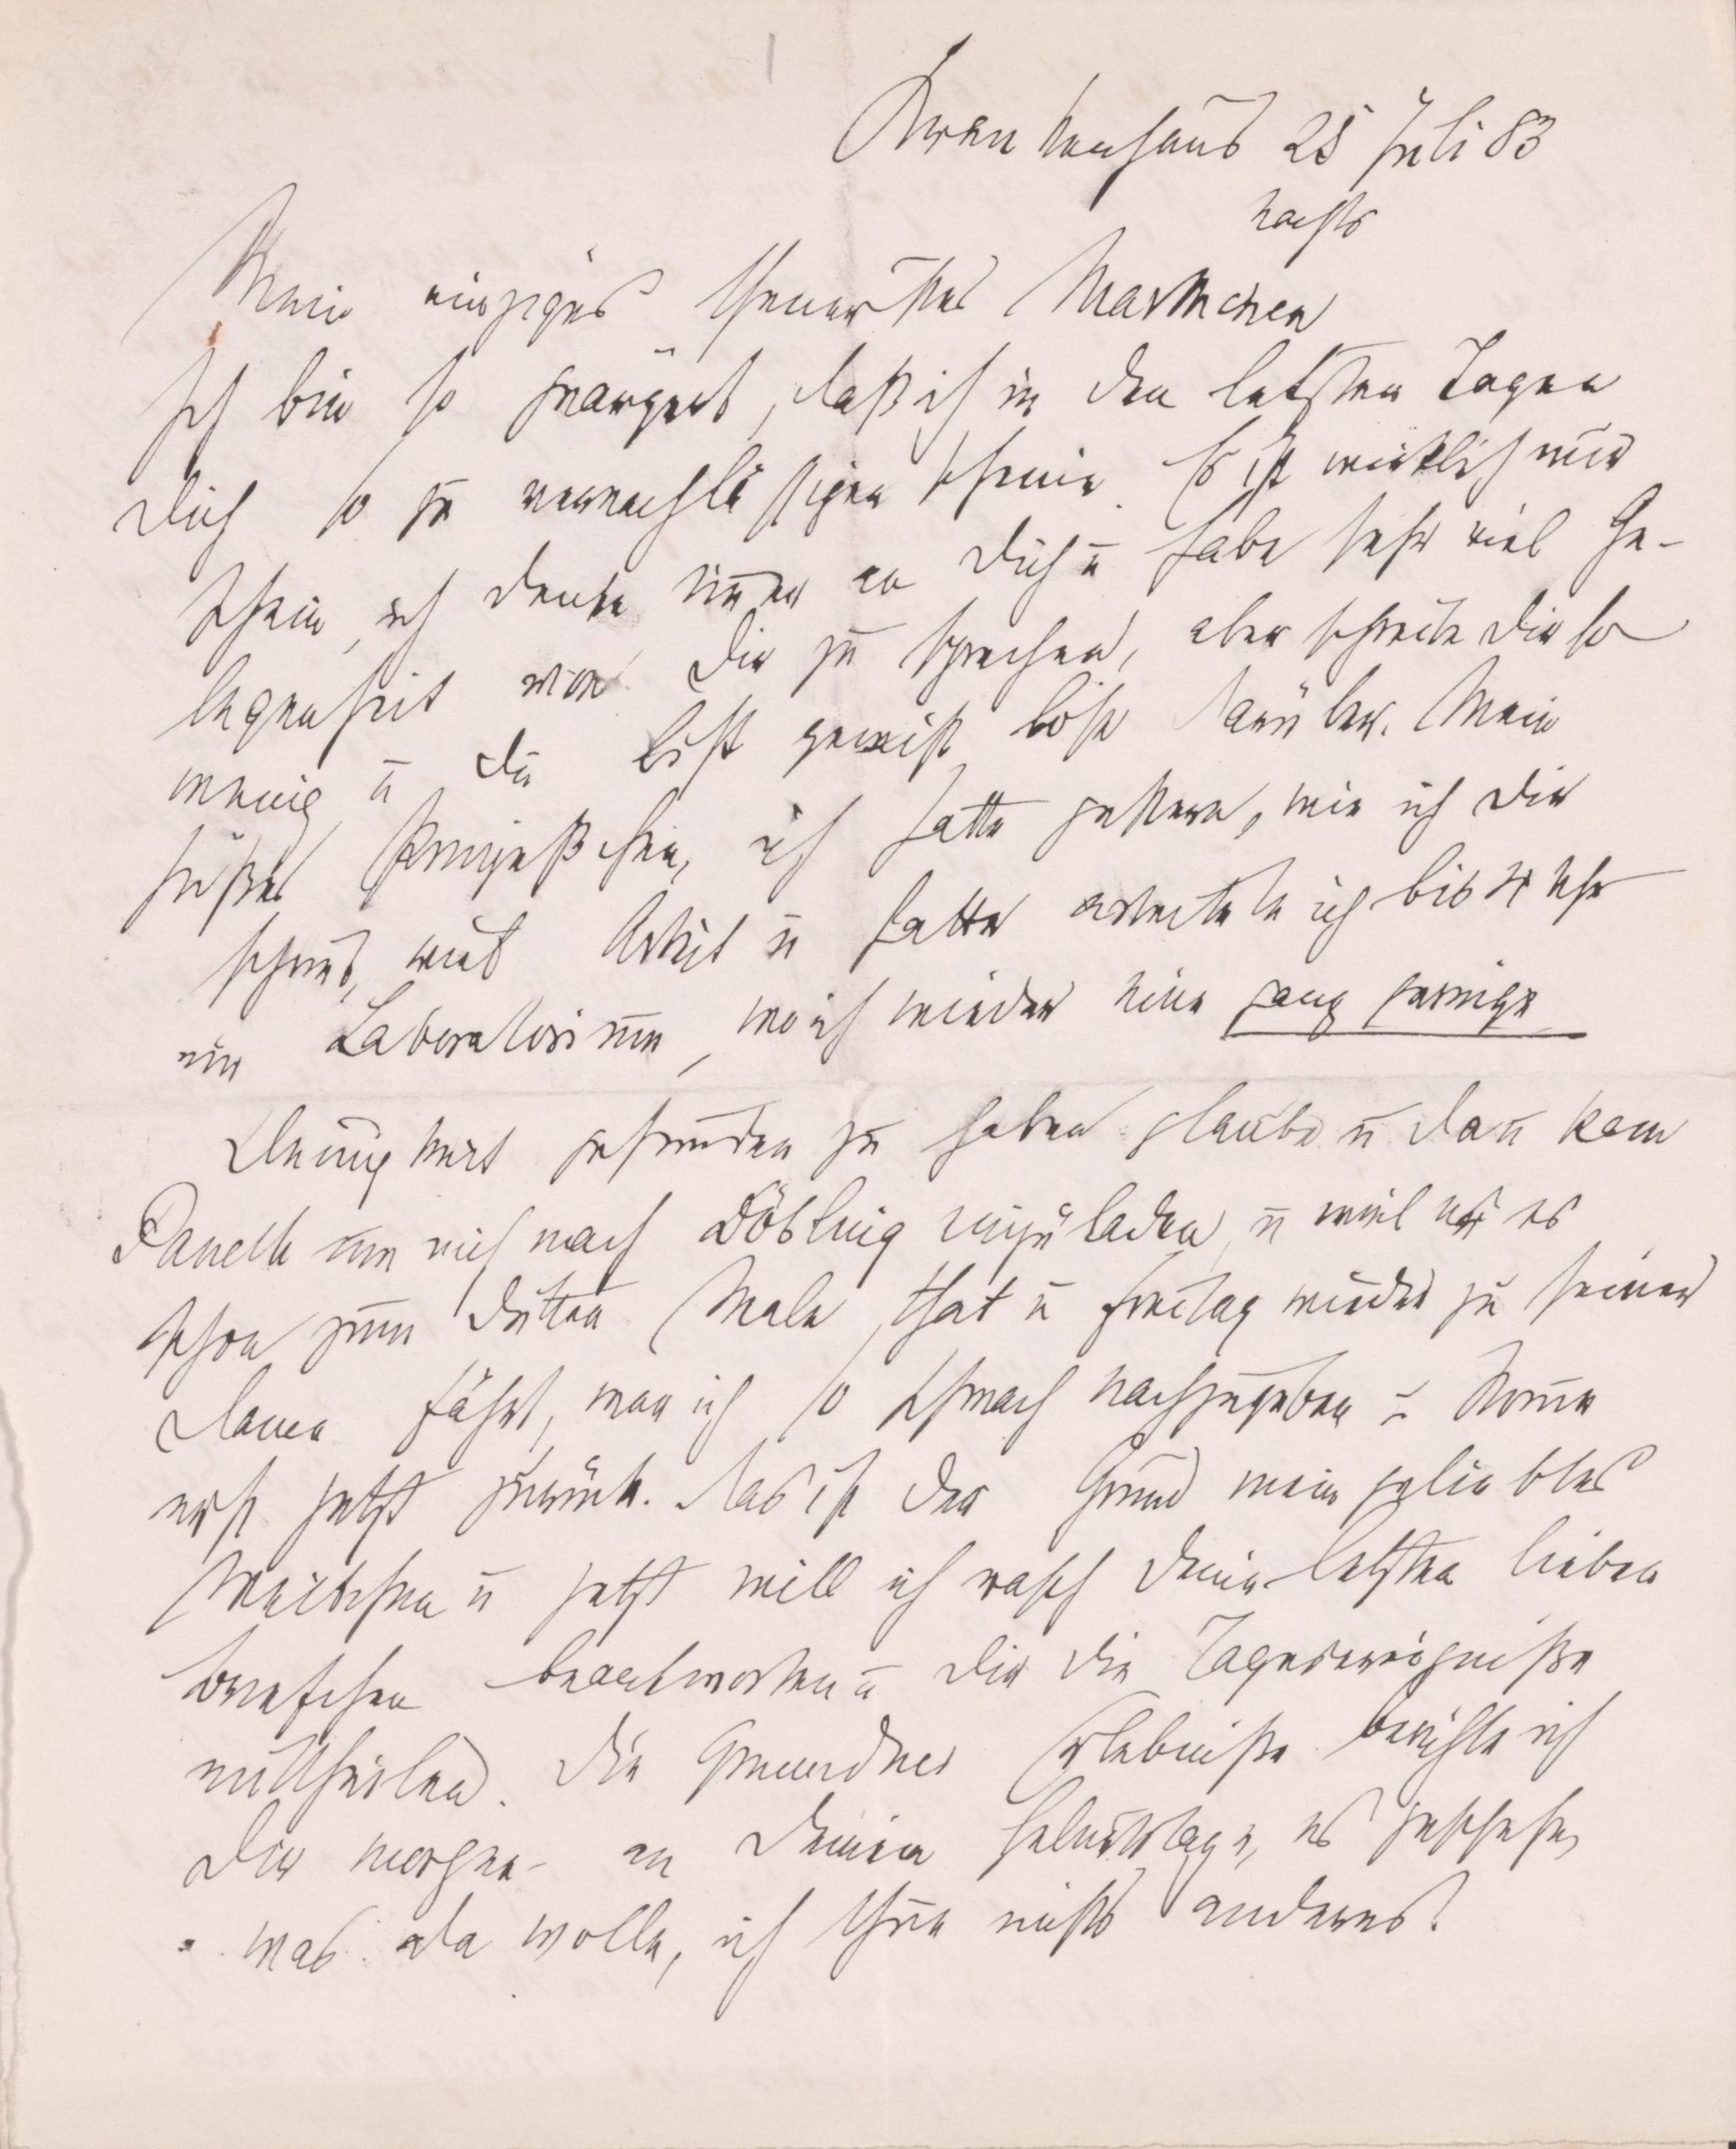 Krankenhaus 25 Juli 83
nachts
Mein einziges theuerstes Marthchen
Ich bin so geärgert, daß ich in den letzten Tagen
Dich so zu vernachläßigen scheine. Es ist wirklich nur
Schein, ich denke im̅er an Dich u habe sehr viel Ge-
legenheit von Dir zu sprechen, aber schreibe Dir so
wenig u Du bist gewiß böse darüber. Mein
süßes Prinzeßchen, ich hatte gestern, wie ich Dir
schrieb, viel Arbeit u heute arbeitete ich bis 4 Uhr
im Laboratorium, wo ich wieder eine ganz geringe
Kleinigkeit gefunden zu haben glaube u dan̅ kam
Paneth um mich nach Döbling einzuladen u weil er es
schon zum dritten Male that u Freitag wieder zu seiner
Dame fährt, war ich so schwach nachzugeben u kom̅e
erst jetzt zurück. Das ist der Grund mein geliebtes
Weibchen u jetzt will ich rasch Deine letzten lieben
Briefchen beantworten u Dir die Tagesereigniße
mittheilen. Die Gmundner Erlebniße berichte ich
Dir morgen an Deinem Geburtstage, es geschehe,
was da wolle, ich thue nichts anderes.